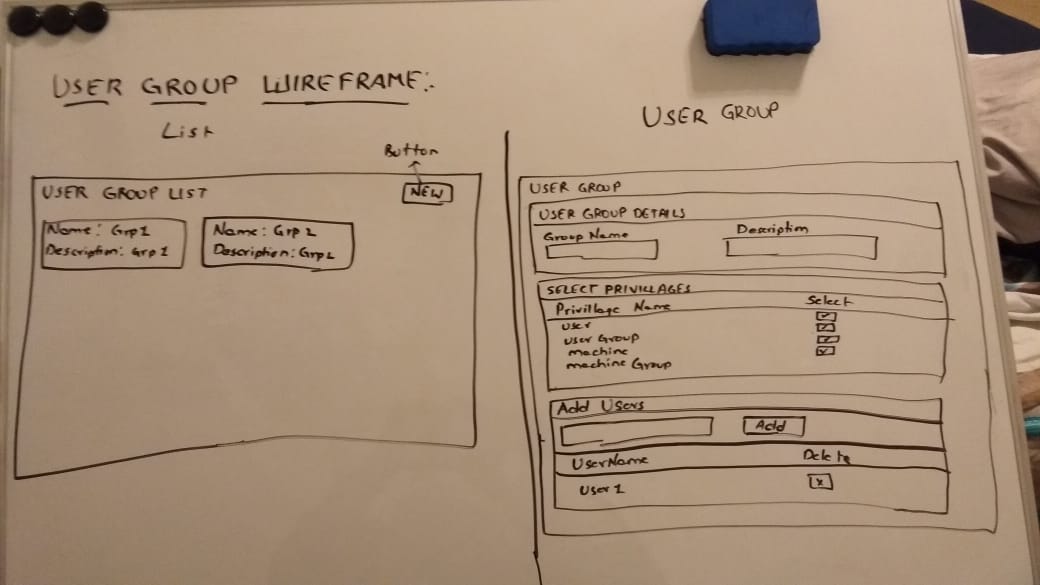 USER GROUP WIREFRAME:
List
Button
USER GROUP LIST
NEW
Name: Grp1
Description: Grp1
Name: Grp2
Description: Grp2
USER GROUP
USER GROUP
USER GROUP DETAILS
Group Name Description
SELECT PRIVILLAGES
Privillage Name Select
User
User Group
machine
machine Group
Add Users
Add
UserName Delete
User1 x